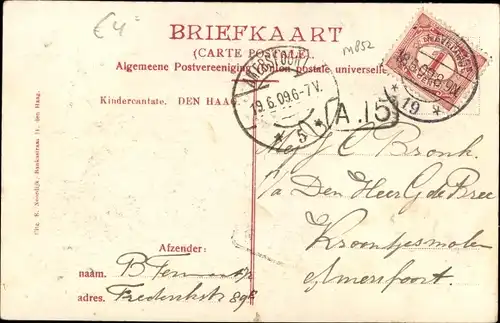 €4
M852
BRIEFKAART
(CARTE POSTALE)
Algemeene Postvereeniging (Union postale universelle)
Kindercantate. DEN HAAG
AMERSFOORT
19.6.09.6-7V.
* 5 *
1
* 19 *
A.15
J C Bronk.
p/a Den Heer G de Bree
Kroontjesmolen
Amersfoort.
Afzender:
naam.
adres. Frederikstr
Uitg. E. Noordijk, Banksstraat den Haag.